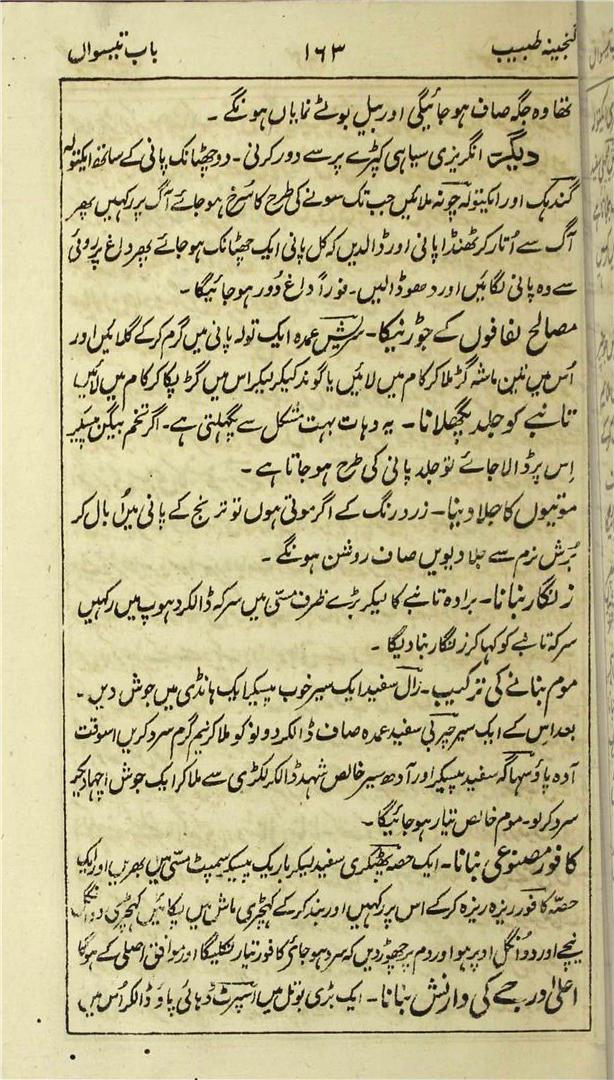 گنجینہ طبیب ۱۶۳ باب تیئسواں
تھا وہ جگہ صاف ہوجائیگی اور بیل بوٹے نمایاں ہونگے ۔
دیگر انگریزی سیاہی کپڑے پر سے دور کرنی ۔ دو چھٹانک پانی کے ساتھ ایکتولہ
گندہک اور ایکتولہ چونہ ملائیں جب تک سونے کی طرح کا سُرخ ہوجائے آگ پر رکہیں پھر
آگ سے اُتار کر ٹھنڈا پانی اور ڈالدیں کہ کل پانی ایک چھٹانک ہوجائے پھر داغ پر روئی
سے وہ پانی لگائیں اور دھو ڈالیں ۔ فوراً داغ دُور ہوجائیگا ۔
مصالح لفافوں کے جوڑنیکا ۔ سریش عمدہ ایک تولہ پانی میں گرم کرکے گلائیں اور
اُس میں تین ماشہ گڑ ملاکر کام میں لائیں یا گوند کیکر لیکر اس میں گڑ پکاکر کام میں لائیں
تانبے کو جلد پگھلانا ۔ یہ دہات بہت مشکل سے پگہلتی ہے ۔ اگر تخم بیگن پیسکر
اِس پر ڈالا جائے تو جلد پانی کی طرح ہوجاتا ہے ۔
موتیوں کا جلا دینا ۔ زرد رنگ کے اگر موتی ہوں تو ترنج کے پانی میں اُبال کر
بُرش نرم سے جلا دیویں صاف روشن ہونگے ۔
زنگار بنانا ۔ برادہ تانبے کا لیکر بڑے ظرف مسّی میں سرکہ ڈالکر دہوپ میں رکہیں
سرکہ تانبے کو کہا کر زنگار بنا دیگا ۔
موم بنانے کی ترکیب ۔ رال سفید ایک سیر خوب پیسکر ایک ہانڈی میں جوش دیں ۔
بعد اس کے ایک سیر چربی سفید عمدہ صاف ڈالکر دونو کو ملاکر نیم گرم سرد کریں اسوقت
آدہ پاؤ سہاگہ سفید پیسکر اور آدھ سیر خالص شہد ڈالکر لکڑی سے ملاکر ایک جوش اچہا دیکر
سرد کرلو ۔ موم خالص تیار ہوجائیگا ۔
کافور مصنوعی بنانا ۔ ایک حصہ پھٹکری سفید لیکر باریک پیسکر سمپٹ مسّی میں بھریں اور ایک
حصّہ کافور ریزہ ریزہ کرکے اس پر رکہیں اور بند کرکے کہچڑی ماش میں پکائیں کہچڑی دو انگل
نیچے اور دو انگل اوپر ہو اور دم پر چھوڑ دیں کہ سرد ہوجائے کافور تیار نکلیگا اور موافق اصلی کے ہوگا
اعلیٰ درجے کی وارنش بنانا ۔ ایک بڑی بوتل میں اسپرٹ ڈہائی پاؤ ڈالکر اُس میں